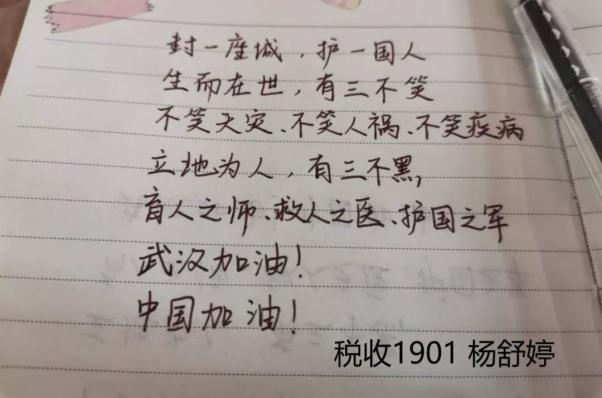 封一座城，护一国人
生而在世，有三不笑
不笑天灾、不笑人祸、不笑疾病
立地为人，有三不黑，
育人之师、救人之医、护国之军
武汉加油！
中国加油！
税收1901 杨舒婷